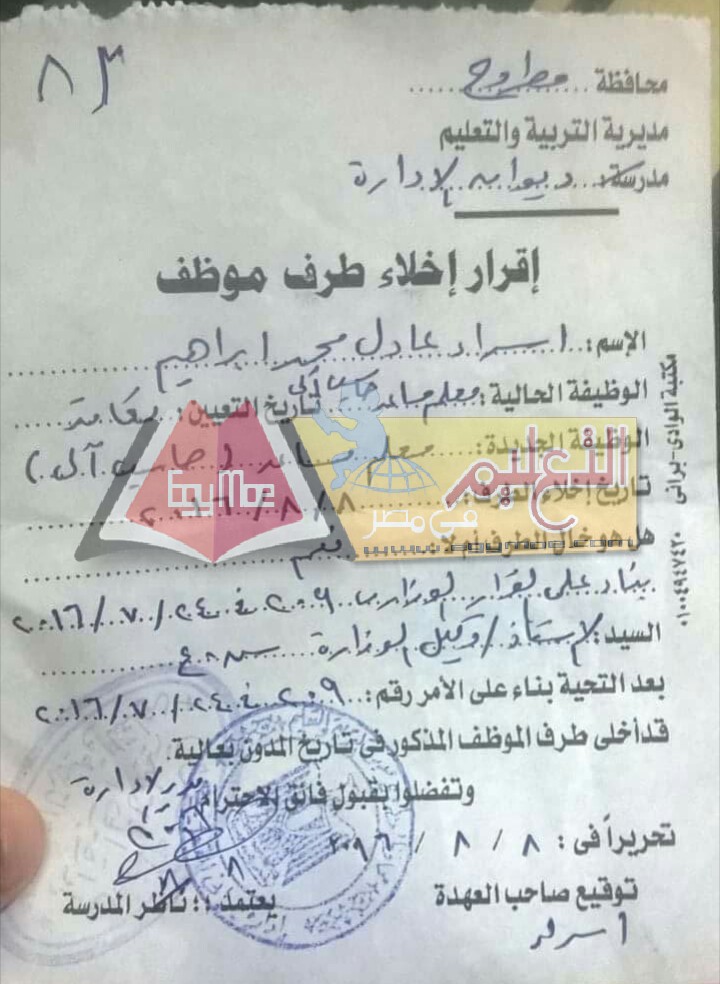 ٨٣
محافظة مطروح
مديرية التربية والتعليم
مدرسة: ديوان الإدارة
إقرار إخلاء طرف موظف
الإسم: اسراء عادل محمد ابراهيم
الوظيفة الحالية: معلم مساعد حاسب آلى تاريخ التعيين:
الوظيفة الجديدة: معلم مساعد (حاسب آلى)
تاريخ إخلاء الطرف: ٨ / ٨ / ٢٠١٦
هل هو خالى الطرف أم لا: نعم
بناء على القرار الوزارى ٢٠٠٩ فى ٢٤ / ٧ / ٢٠١٦
السيد: الاستاذ / وكيل الوزارة
بعد التحية بناء على الأمر رقم: ٢٠٠٩ فى ٢٤ / ٧ / ٢٠١٦
قد أخلى طرف الموظف المذكور فى تاريخ المدون بعالية.
وتفضلوا بقبول فائق الاحترام
مدير الإدارة
تحريراً فى: ٨ / ٨ / ٢٠١٦
توقيع صاحب العهدة
يعتمد،: ناظر المدرسة
اسراء
مكتبة الوادى-برانى ٠١٠٠٤٩٤٧٤٢٠
التعليم
فى مصر